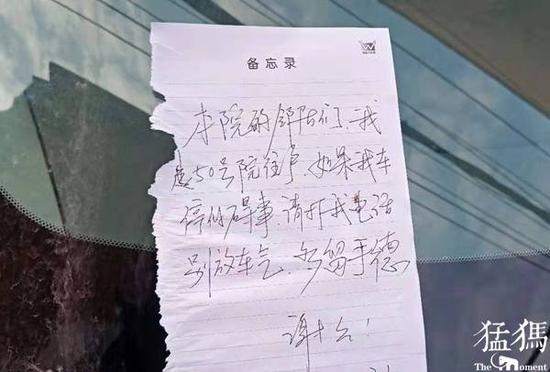 备忘录
本院的邻居们、我
是50号院住户、如果我车
停的碍事、请打我电话
别放车气、多留手德
谢谢！
猛獁
The Moment